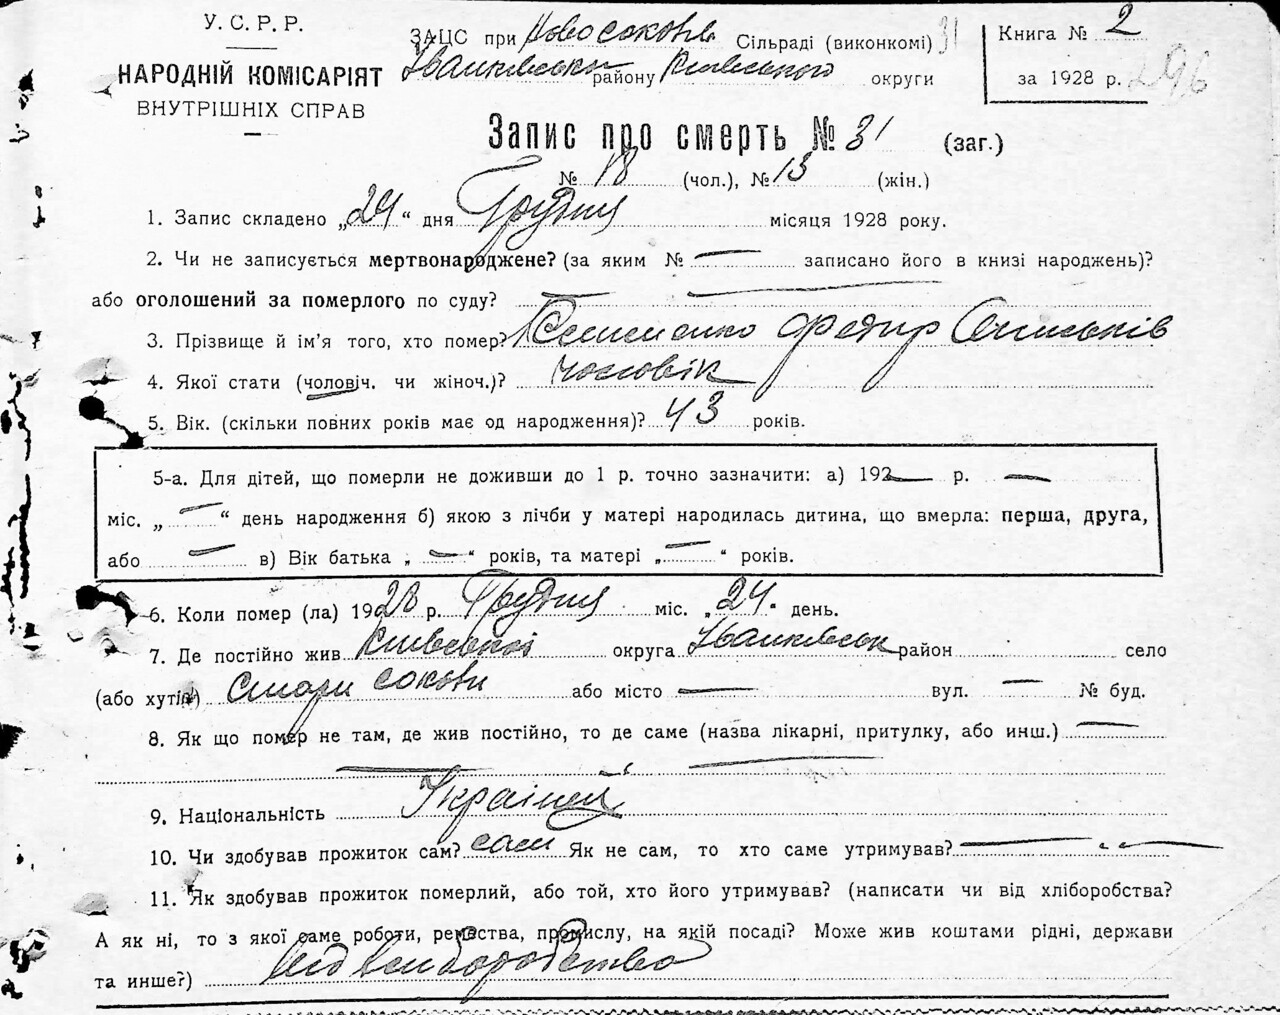 У.С.Р.Р.
НАРОДНІЙ КОМІСАРІЯТ
ВНУТРІШНІХ СПРАВ
ЗАЦС при Новосоковс Сільраді (виконкомі) 31
Іванківськ району Київського округи
Книга № 2
за 1928 р. 296
Запис про смерть № 31 (заг.)
№ 18 (чол.), № 13 (жін.)
1. Запис складено „24“ дня Грудня місяця 1928 року.
2. Чи не записується мертвонароджене? (за яким № — записано його в книзі народжень)?
або оголошений за померлого по суду? — —
3. Прізвище й ім'я того, хто помер? Федир
4. Якої стати (чоловіч. чи жіноч.)? чоловік
5. Вік. (скільки повних років має од народження)? 43 років.
5-а. Для дітей, що померли не доживши до 1 р. точно зазначити: а) 192— р. —
міс. „—“ день народження б) якою з лічби у матері народилась дитина, що вмерла: перша, друга,
або — в) Вік батька „—“ років, та матері „—“ років.
6. Коли помер (ла) 1928 р. Грудня міс. „24. день.
7. Де постійно жив Київської округа Іванківськ район село
(або хутір) Стари Сокови або місто — вул. — № буд.
8. Як що помер не там, де жив постійно, то де саме (назва лікарні, притулку, або инш.) —
— —
9. Національність Украінец
10. Чи здобував прожиток сам? сам Як не сам, то хто саме утримував? — —
11. Як здобував прожиток померлий, або той, хто його утримував? (написати чи від хліборобства?
А як ні, то з якої саме роботи, ремества, промислу, на якій посаді? Може жив коштами рідні, держави
та инше?)